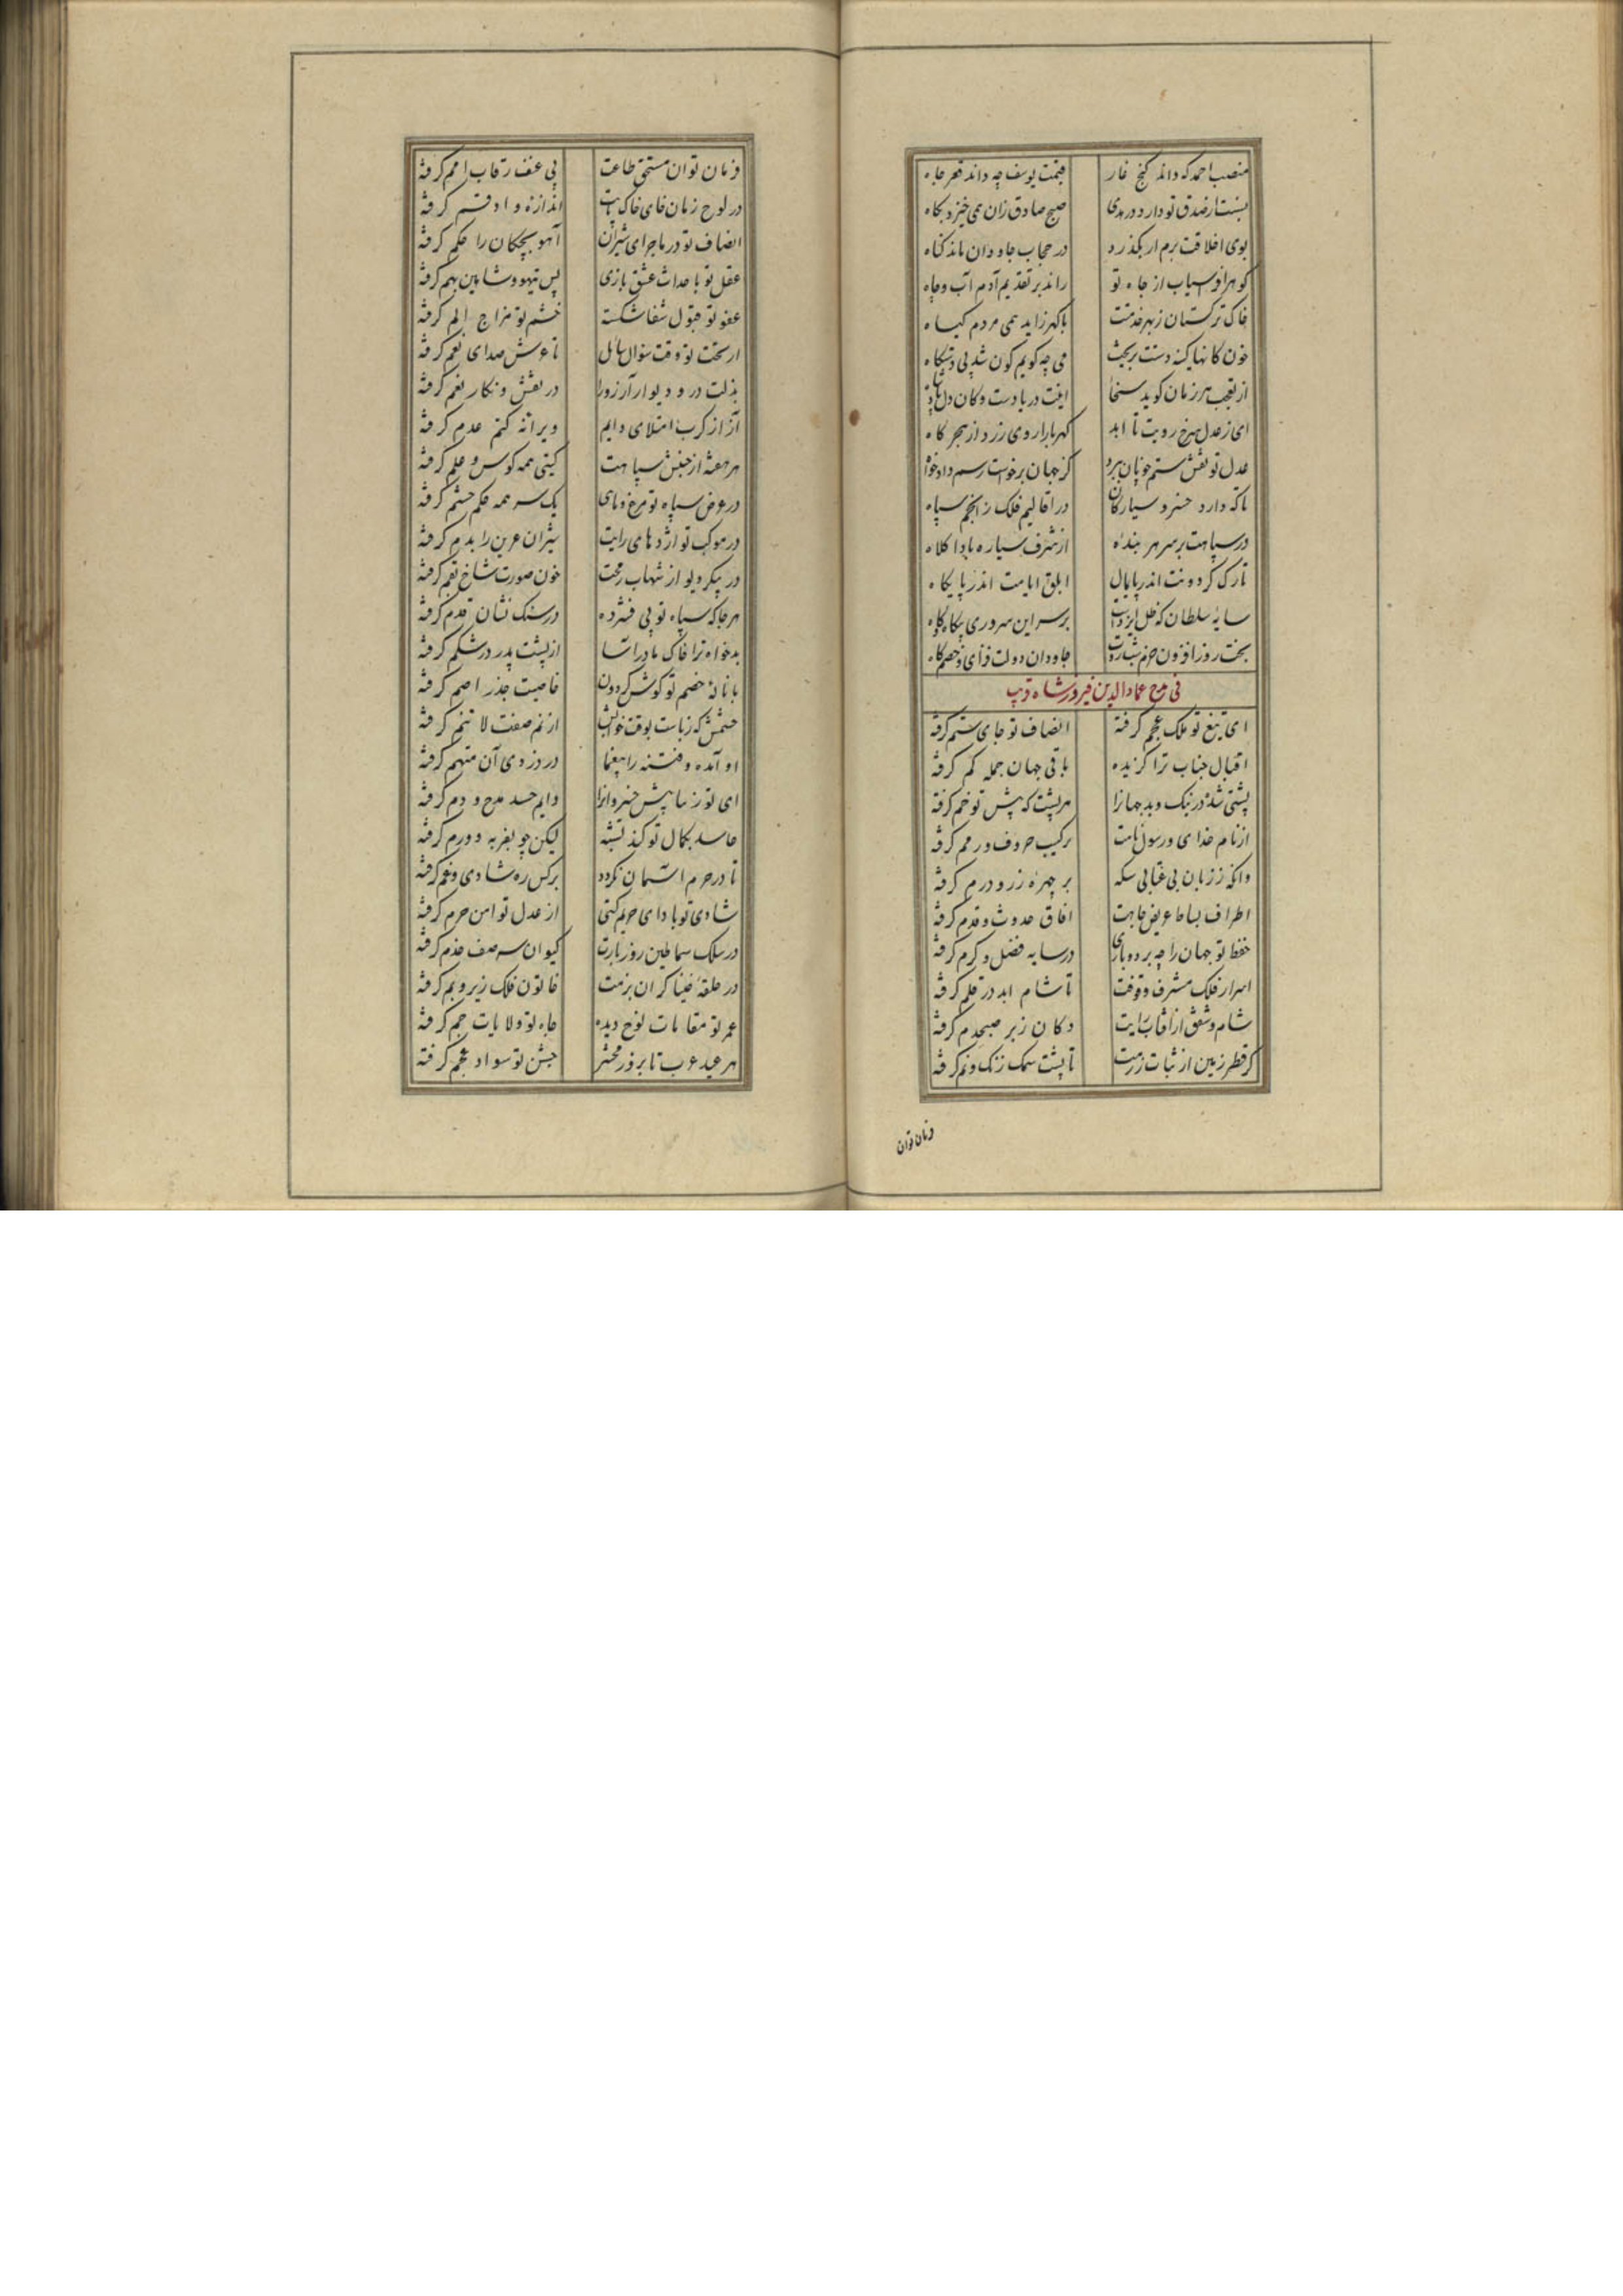 منصب احمد که داند کنج غار قیمت یوسف چه داند قعر چاه
نسبت از صدق تو دارد در هدی صبح صادق زان همی خیزد پکاه
بوی اخلاقت برم ار بگذرد در حجاب جاودان ماند گناه
گوهر افراسیاب از جاه تو راند بر تقدیم آدم آب و جاه
خاک ترکستان ز بهر خدمتت با گهر زاید همی مردم گیاه
خون کانها کینهٔ دستت بریخت می چه گویم کون شد بی دستگاه
از تعجب هر زمان گوید سخا اینت دریا دست و کان دل
ای ز عدل سرخ رویت تا ابد کهربا را روی زرد از هجر کاه
عدل تو نقش ستم چونان ببرد کز جهان برخواست رسم دادخواه
تا که دارد خسرو سیارگان در اقالیم فلک ز انجم سپاه
در سپاهت بر سر هر بنده از شرف سیاره بادا کلاه
تارک گردونت اندر پایمال ابلق ایامت اندر پایگاه
سایهٔ سلطان که ظل ایزدست بر سر این سروری
بخت روزافزون حزم جاودان دولت فزای و خصم کاه
فی مدح عمادالدین فیروزشاه
ای تیغ تو ملک عجم گرفته انصاف تو جای ستم گرفته
اقبال جناب ترا گزیده باقی جهان جمله کم گرفته
پشتی شده در نیک و بد جهانرا هر پشت که پیش تو خم گرفته
از نام خدای و رسول نامت ترکیب حروف و رقم گرفته
وانگه ز زبان بی عنایی سکه بر چهرهٔ زر و درم گرفته
اطراف بساط عریض جاهت آفاق حدوث و قدم گرفته
حفظ تو جهان را چه برده باری در سایه فضل و کرم گرفته
اسرار فلک مشرف وقوفت تا شام ابد در قلم گرفته
شام و شفق از آفتاب رایت دکان زبر صبحدم گرفته
گر قطر زمین از ثبات رزمت تا پشت سمک زنگ و نم گرفته
فرمان توان
فرمان توان مستحق طاعت بی عنف رقاب امم گرفته
در لوح زمان خای خاک پایت اندازهٔ و او قسم گرفته
انصاف تو در ماجرای شیران آهو بچکان را حکم گرفته
عقل تو با حداث عشق بازی پس تیهو و شاهین بهم گرفته
عفو تو قبول شفا شکسته خشم تو مزاج الم گرفته
از بخت تو وقت سؤال سائل تا عرش صدای نعم گرفته
بذلت در و دیوار آرزو را در نقش و نگار نعم گرفته
آز از کرب امتلای دایم ویرانه کتم عدم گرفته
هر هفته از جنبش سپاهت گیتی همه کوس و علم گرفته
در عرض سپاه تو مرغ و ماهی یک سر همه حکم حشم گرفته
در موکب تو اژدهای رایت شیران عرین را بدم گرفته
در پیکر دیو از شهاب رمحت خون صورت شاخ بقم گرفته
هر جا که سپاه تو پی فشرده در سنگ نشان قدم گرفته
بدخواه ترا خاک مادر آسا از پشت پدر در شکم گرفته
با نالهٔ خصم تو گوش گردون خاصیت جذر اصم گرفته
خشمش که ز بأست بوقت خوابش از نم صفت لا تنم گرفته
او آمده و فتنه را بیغما در دزدی آن متهم گرفته
ای تو ز ما پیش خسروانرا دایم حسد مدح و ذم گرفته
حاسد بکمال تو کند تشبه لیکن چو بفربه و ورم گرفته
تا در حرم آسمان نگردد بر کس ره شادی و غم گرفته
شادی تو بادای حریم گیتی از عدل تو امن حرم گرفته
در سلک سماطین روز بارت کیوان سر صف خدم گرفته
در حلقهٔ خنیاگران بزمت خاتون فلک زیر و بم گرفته
عمر تو مقامات نوح دیده جاه تو ولایات جم گرفته
هر عید عرب تا بروز محشر جشن تو سواد عجم گرفته